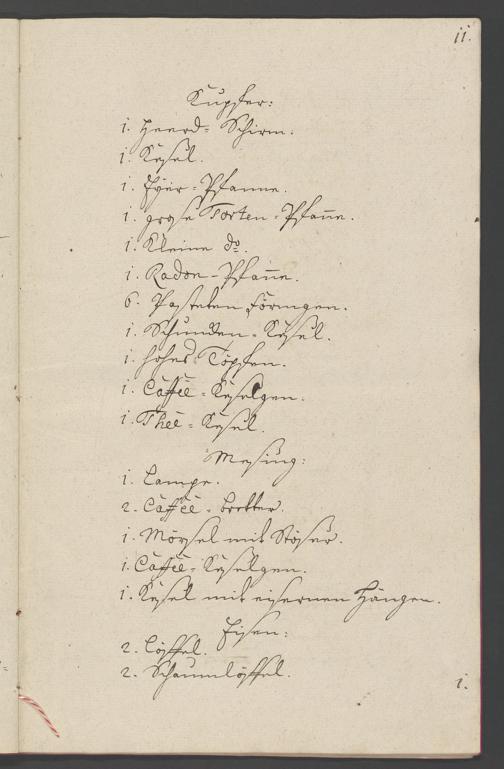 11.
Kupfer:
1. Heerd-Schirm.
1. Kesel.
1. Eyer-Pfanne.
1. grose Torten-Pfan̄e.
1. Kleine do.
1. Radon-Pfan̄e.
6. Pasteten Förmgen.
1. Schunden-Kesel.
1. hohes Töpfen.
1. Caffée-Keselgen.
1. Theé-Kesel.
Mesing:
1. Lampe.
2. Caffée-bretter.
1. Mörsel mit Stöser.
1. Caffée-Keselgen.
1. Kesel mit eisernen Hängen.
Eisen:
2. Löffel.
2. Schaumlöffel.
1.